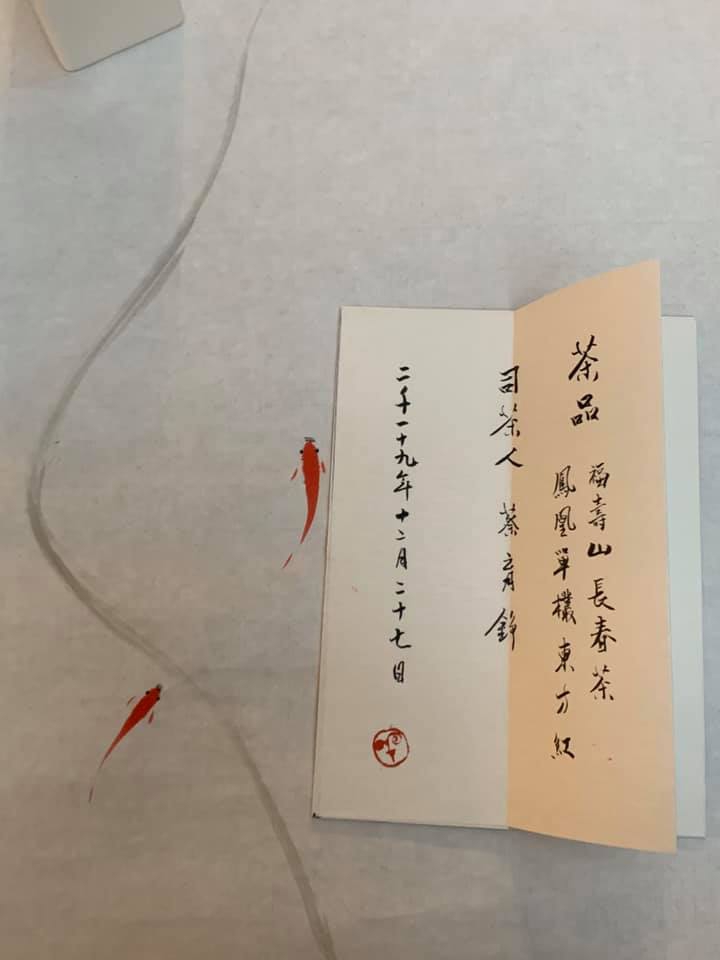 茶品
福壽山長春茶
鳳凰單欉東方紅
司茶人 蔡育錚
二千一十九年十二月二十七日